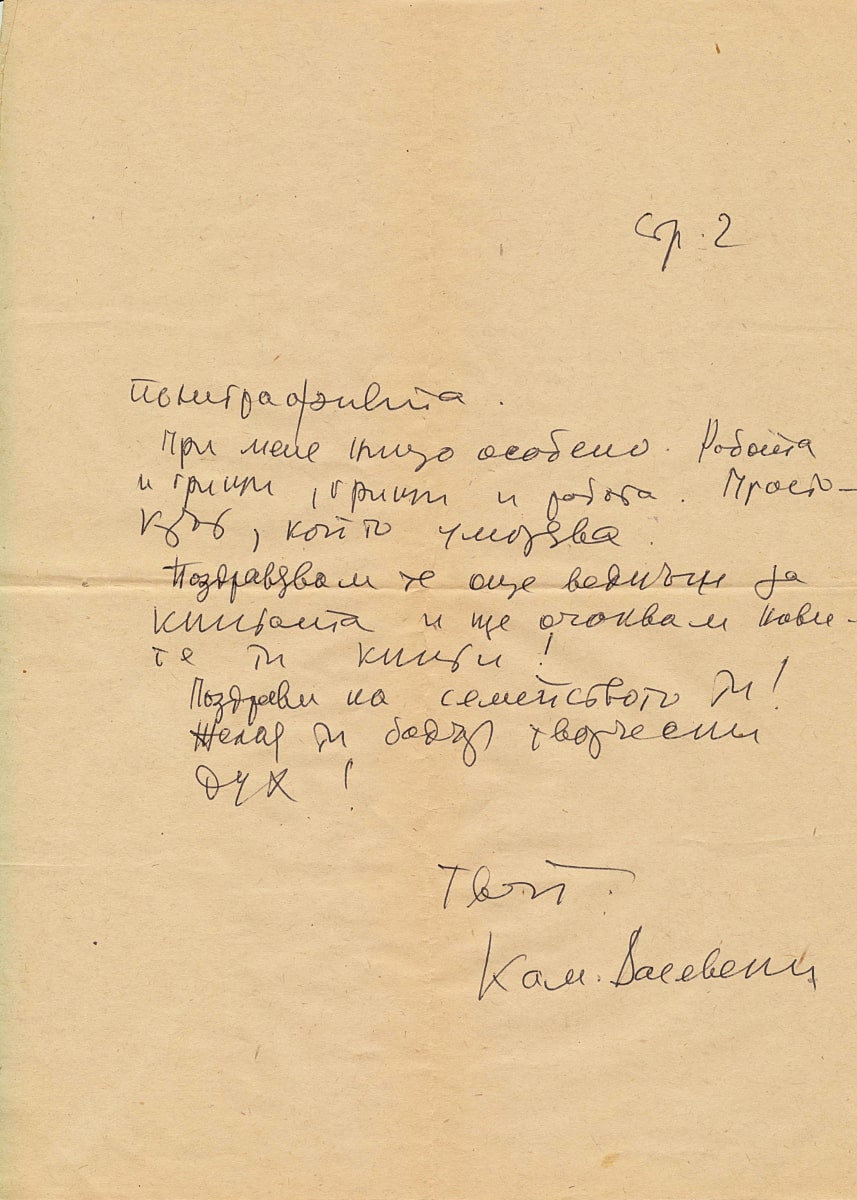 стр. 2
полиграфията.
При мене нищо особено. Работа
и грижи, грижи и работа. Просто
кръг, който уморява.
Поздравявам те още веднъж за
книгата и ще очаквам нови-
те ти книги!
Поздрави на семейството ти!
Желая ти бодър творчески
дух!
Твой:
Кам.